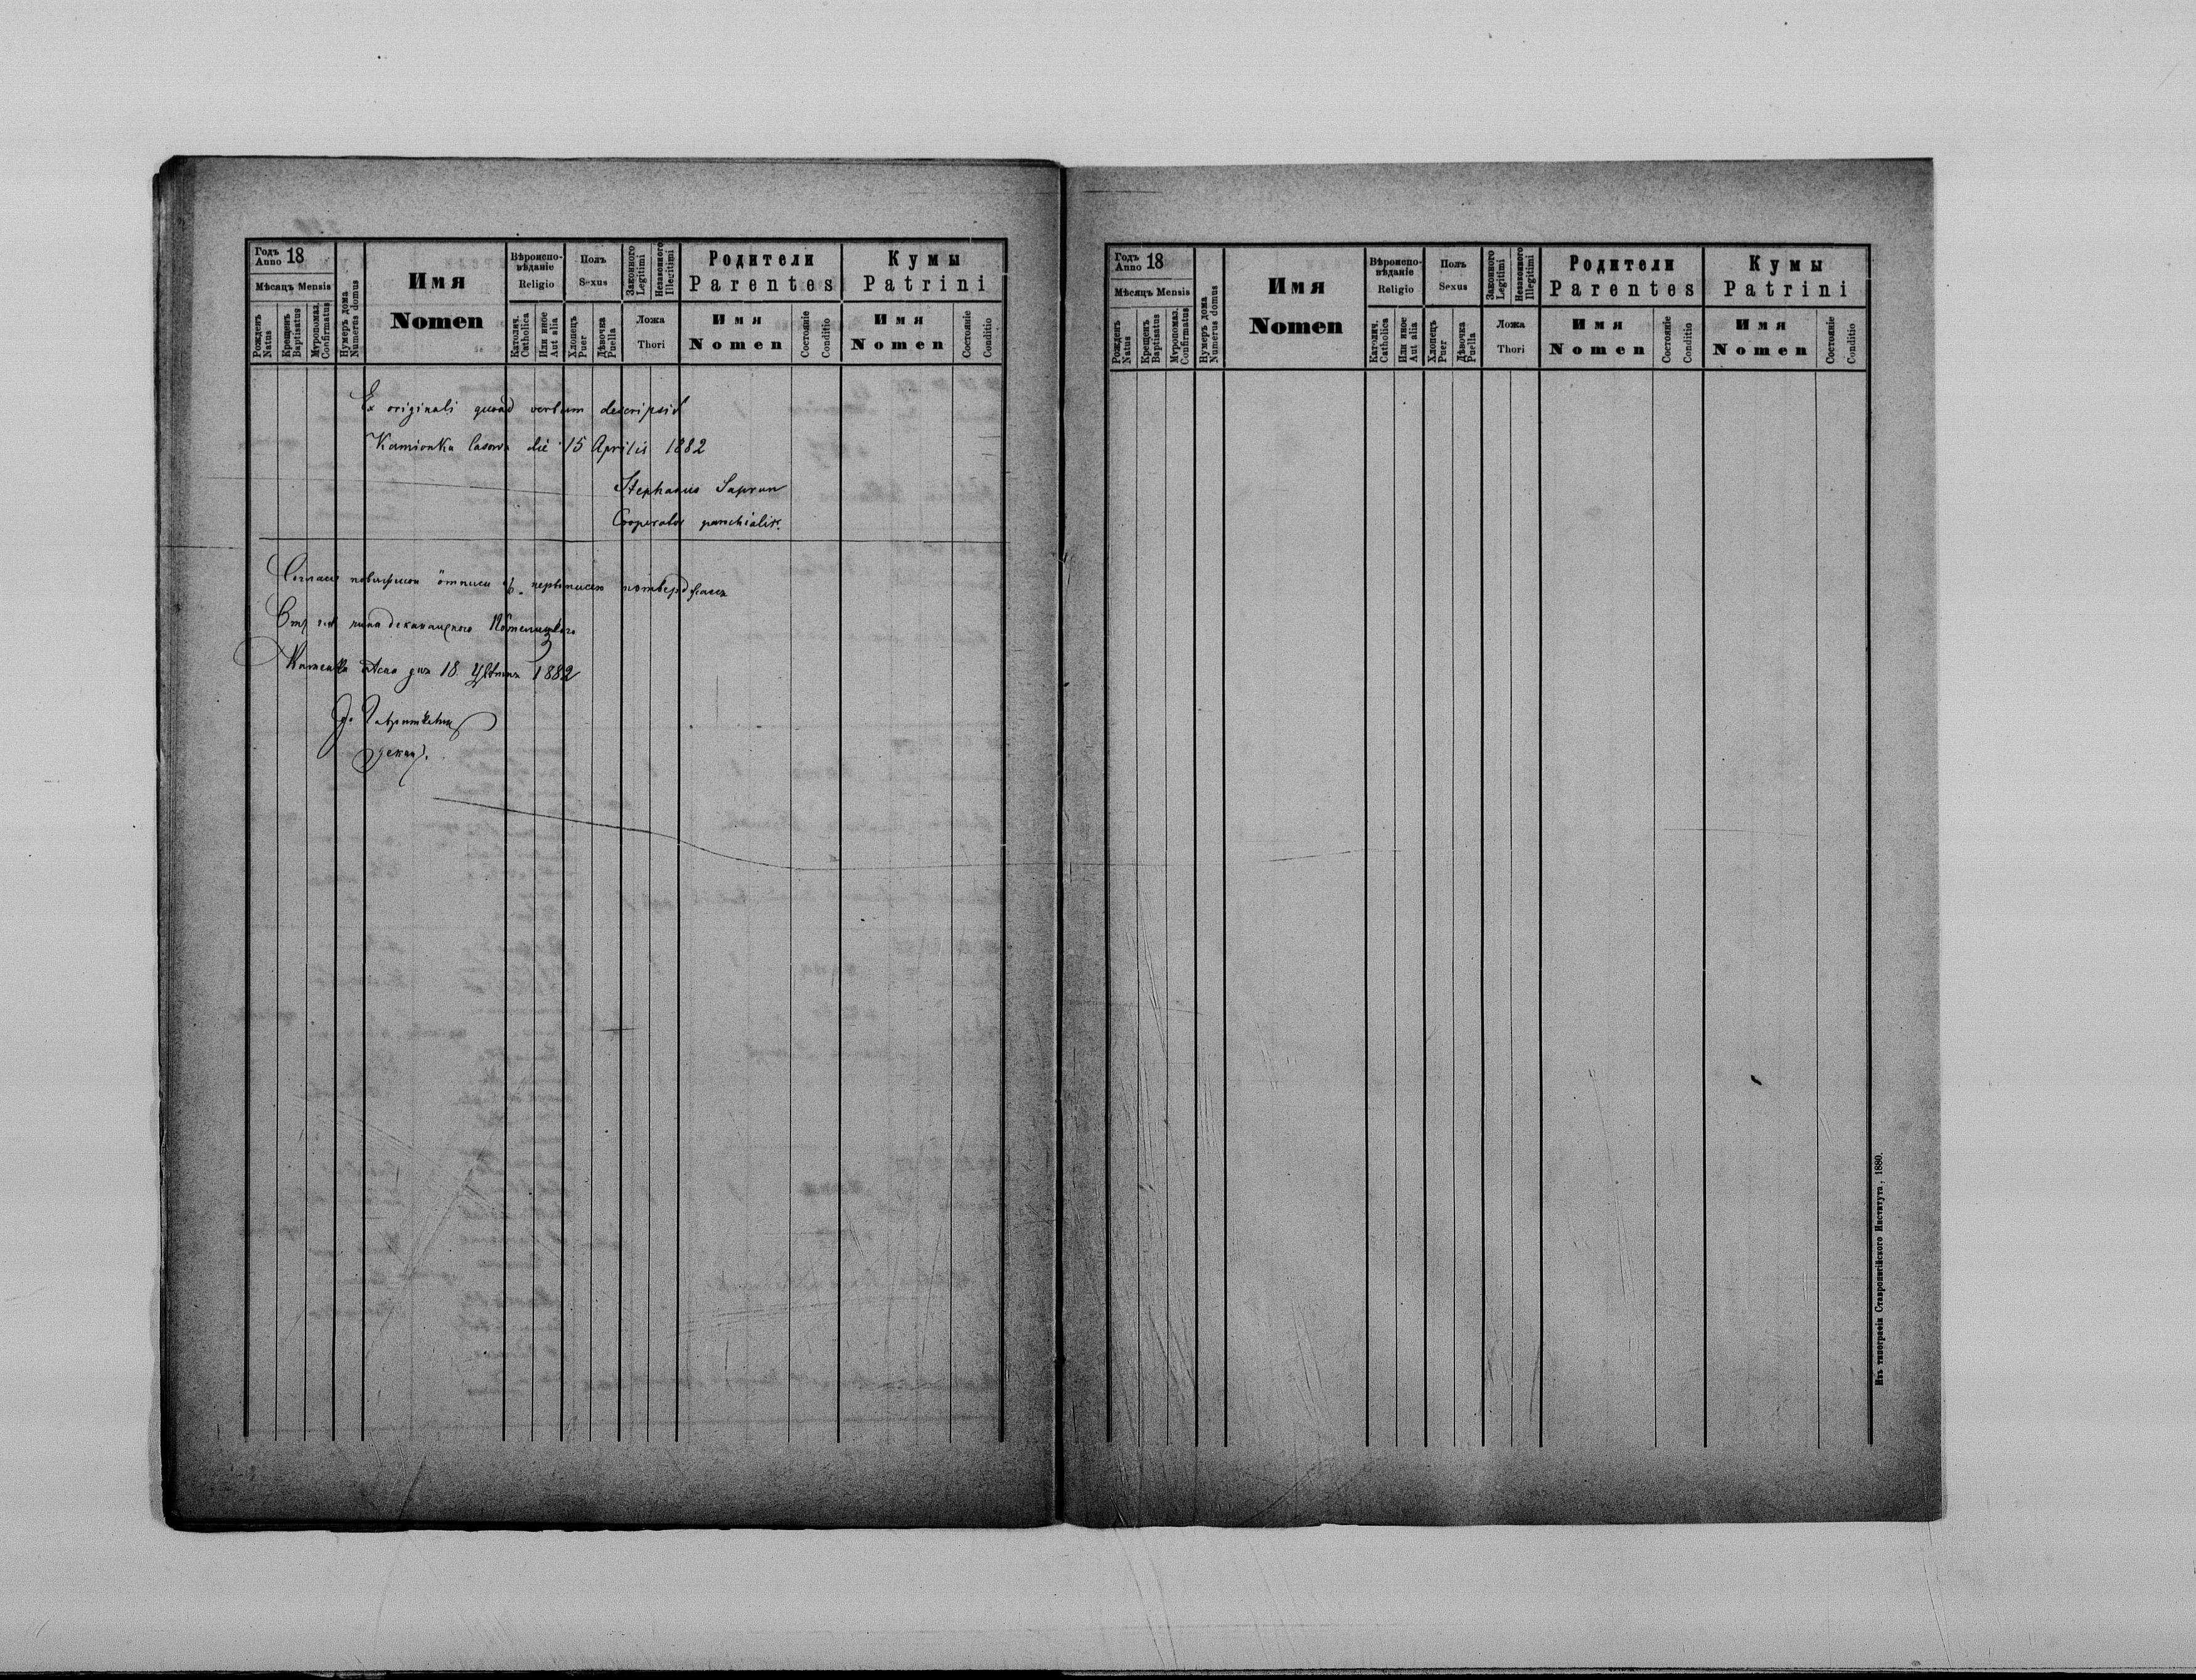 Годъ Anno 18
Мѣсяцъ Mensis
Рожденъ Natus
Крещенъ Baptisatus
Мѵропомаз. Confirmatus
Нумеръ дома Numerus domus
Имя
Nomen
Вѣроиспо-
вѣданіе
Religio
Католич. Catholica
Или иное Aut alia
Полъ
Sexus
Хлопецъ Puer
Дѣвочка Puella
Законного Legitimi
Незаконного Illegitimi
Ложа
Thori
Родители
Parentes
Имя
Nomen
Состояніе
Conditio
Кумы
Patrini
Имя
Nomen
Состояніе
Conditio
Ex originali quoad verbum descripsit
Kamionka lasowa die 15 Aprilis 1882
Stephanus Saprun
Cooperator parochialis.
потверджаесь
Отъ деканального
Каменка лѣсна дня 18 Цвѣтня 1882
декан.
Годъ Anno 18
Мѣсяцъ Mensis
Рожденъ Natus
Крещенъ Baptisatus
Мѵропомаз. Confirmatus
Нумеръ дома Numerus domus
Имя
Nomen
Вѣроиспо-
вѣданіе
Religio
Католич. Catholica
Или иное Aut alia
Полъ
Sexus
Хлопецъ Puer
Дѣвочка Puella
Законного Legitimi
Незаконного Illegitimi
Ложа
Thori
Родители
Parentes
Имя
Nomen
Состояніе
Conditio
Кумы
Patrini
Имя
Nomen
Состояніе
Conditio
Изъ типографіи Ставропигійского Института, 1880.